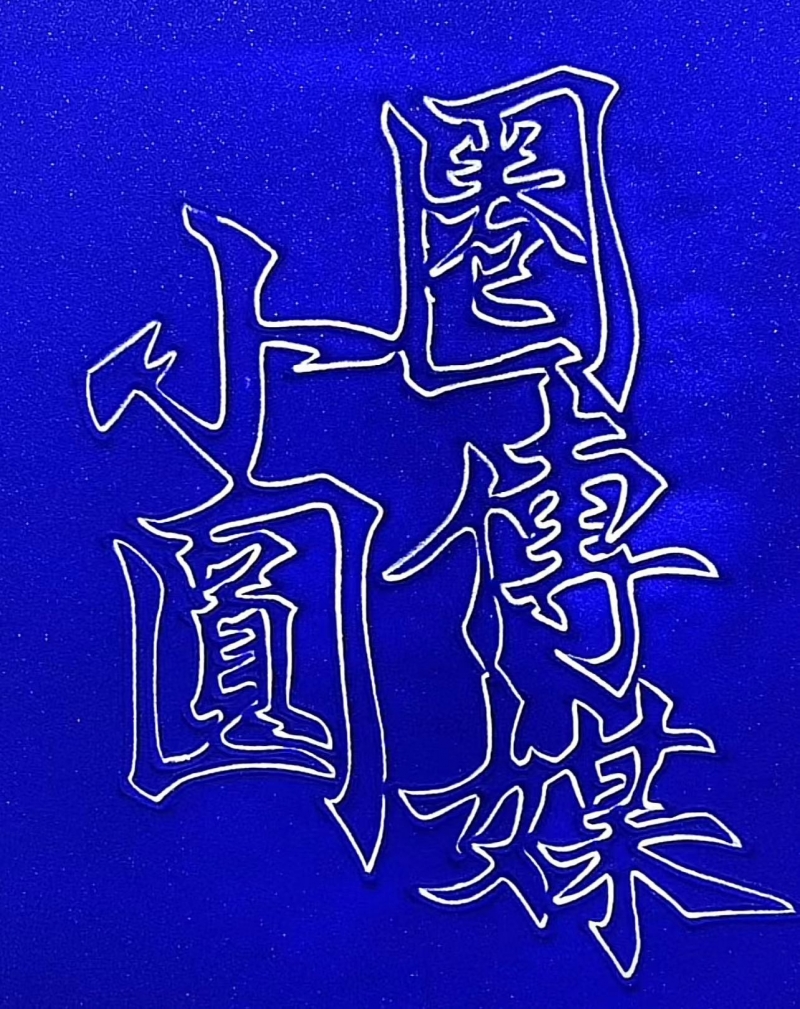 小圓
圈傳媒